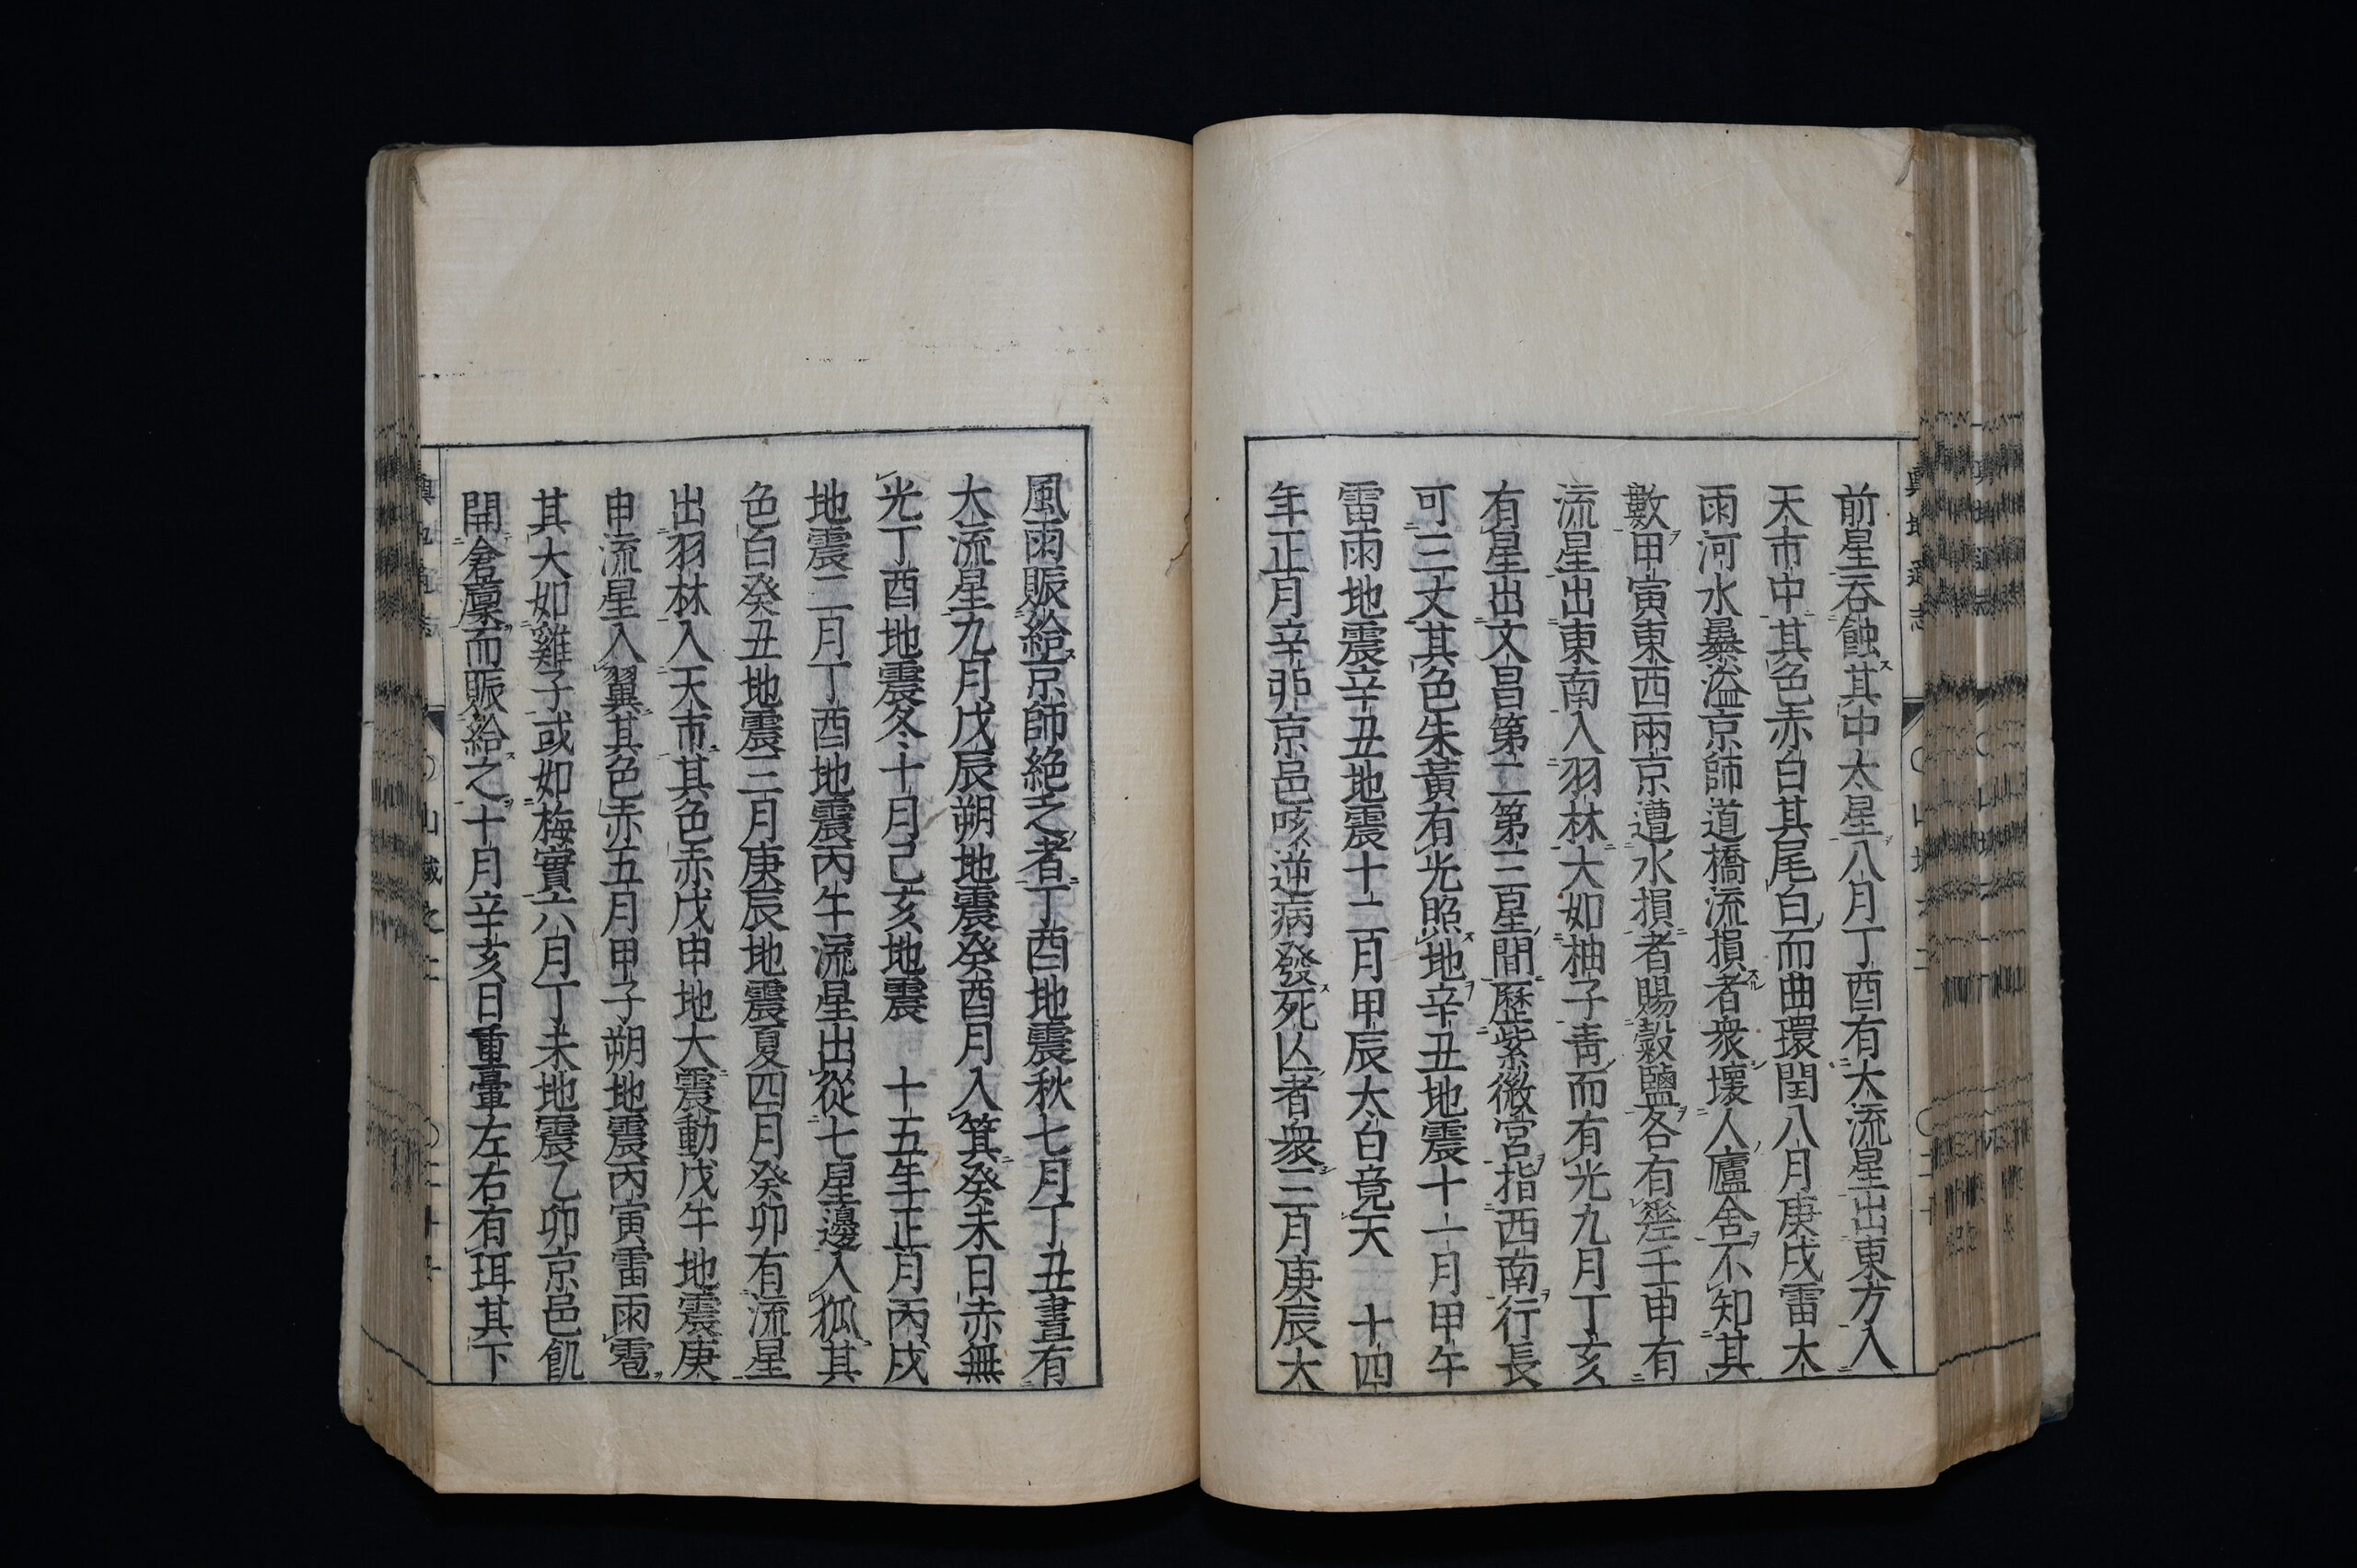 前星呑蝕其中大星八月丁酉有大流星出東方入
天市中其色赤白其尾白而曲環閏八月庚戌雷大
雨河水暴溢京師道橋流損者衆壊人廬舎不知其
數甲寅東西兩京遭水損者賜穀鹽各有差壬申有
流星出東南入羽林大如柚子青而有光九月丁亥
有星出文昌第二第三星間歷紫微宮指西南行長
可三丈其色朱黄有光照地辛丑地震十一月甲午
雷雨地震辛丑地震十二月甲辰太白竟天 十四
年正月辛卯京邑咳逆病發死亾者衆三月庚辰大
風雨賑給京師絶乏者丁酉地震秋七月丁丑晝有
大流星九月戊辰朔地震癸酉月入箕癸未日赤無
光丁酉地震冬十月己亥地震 十五年正月丙戌
地震二月丁酉地震丙午流星出從七星邊入狐其
色白癸丑地震三月庚辰地震夏四月癸卯有流星
出羽林入天市其色赤戊申地大震動戊午地震庚
申流星入翼其色赤五月甲子朔地震丙寅雷雨雹
其大如雞子或如梅實六月丁未地震乙卯京邑飢
開倉廩而賑給之十月辛亥日重暈左右有珥其下